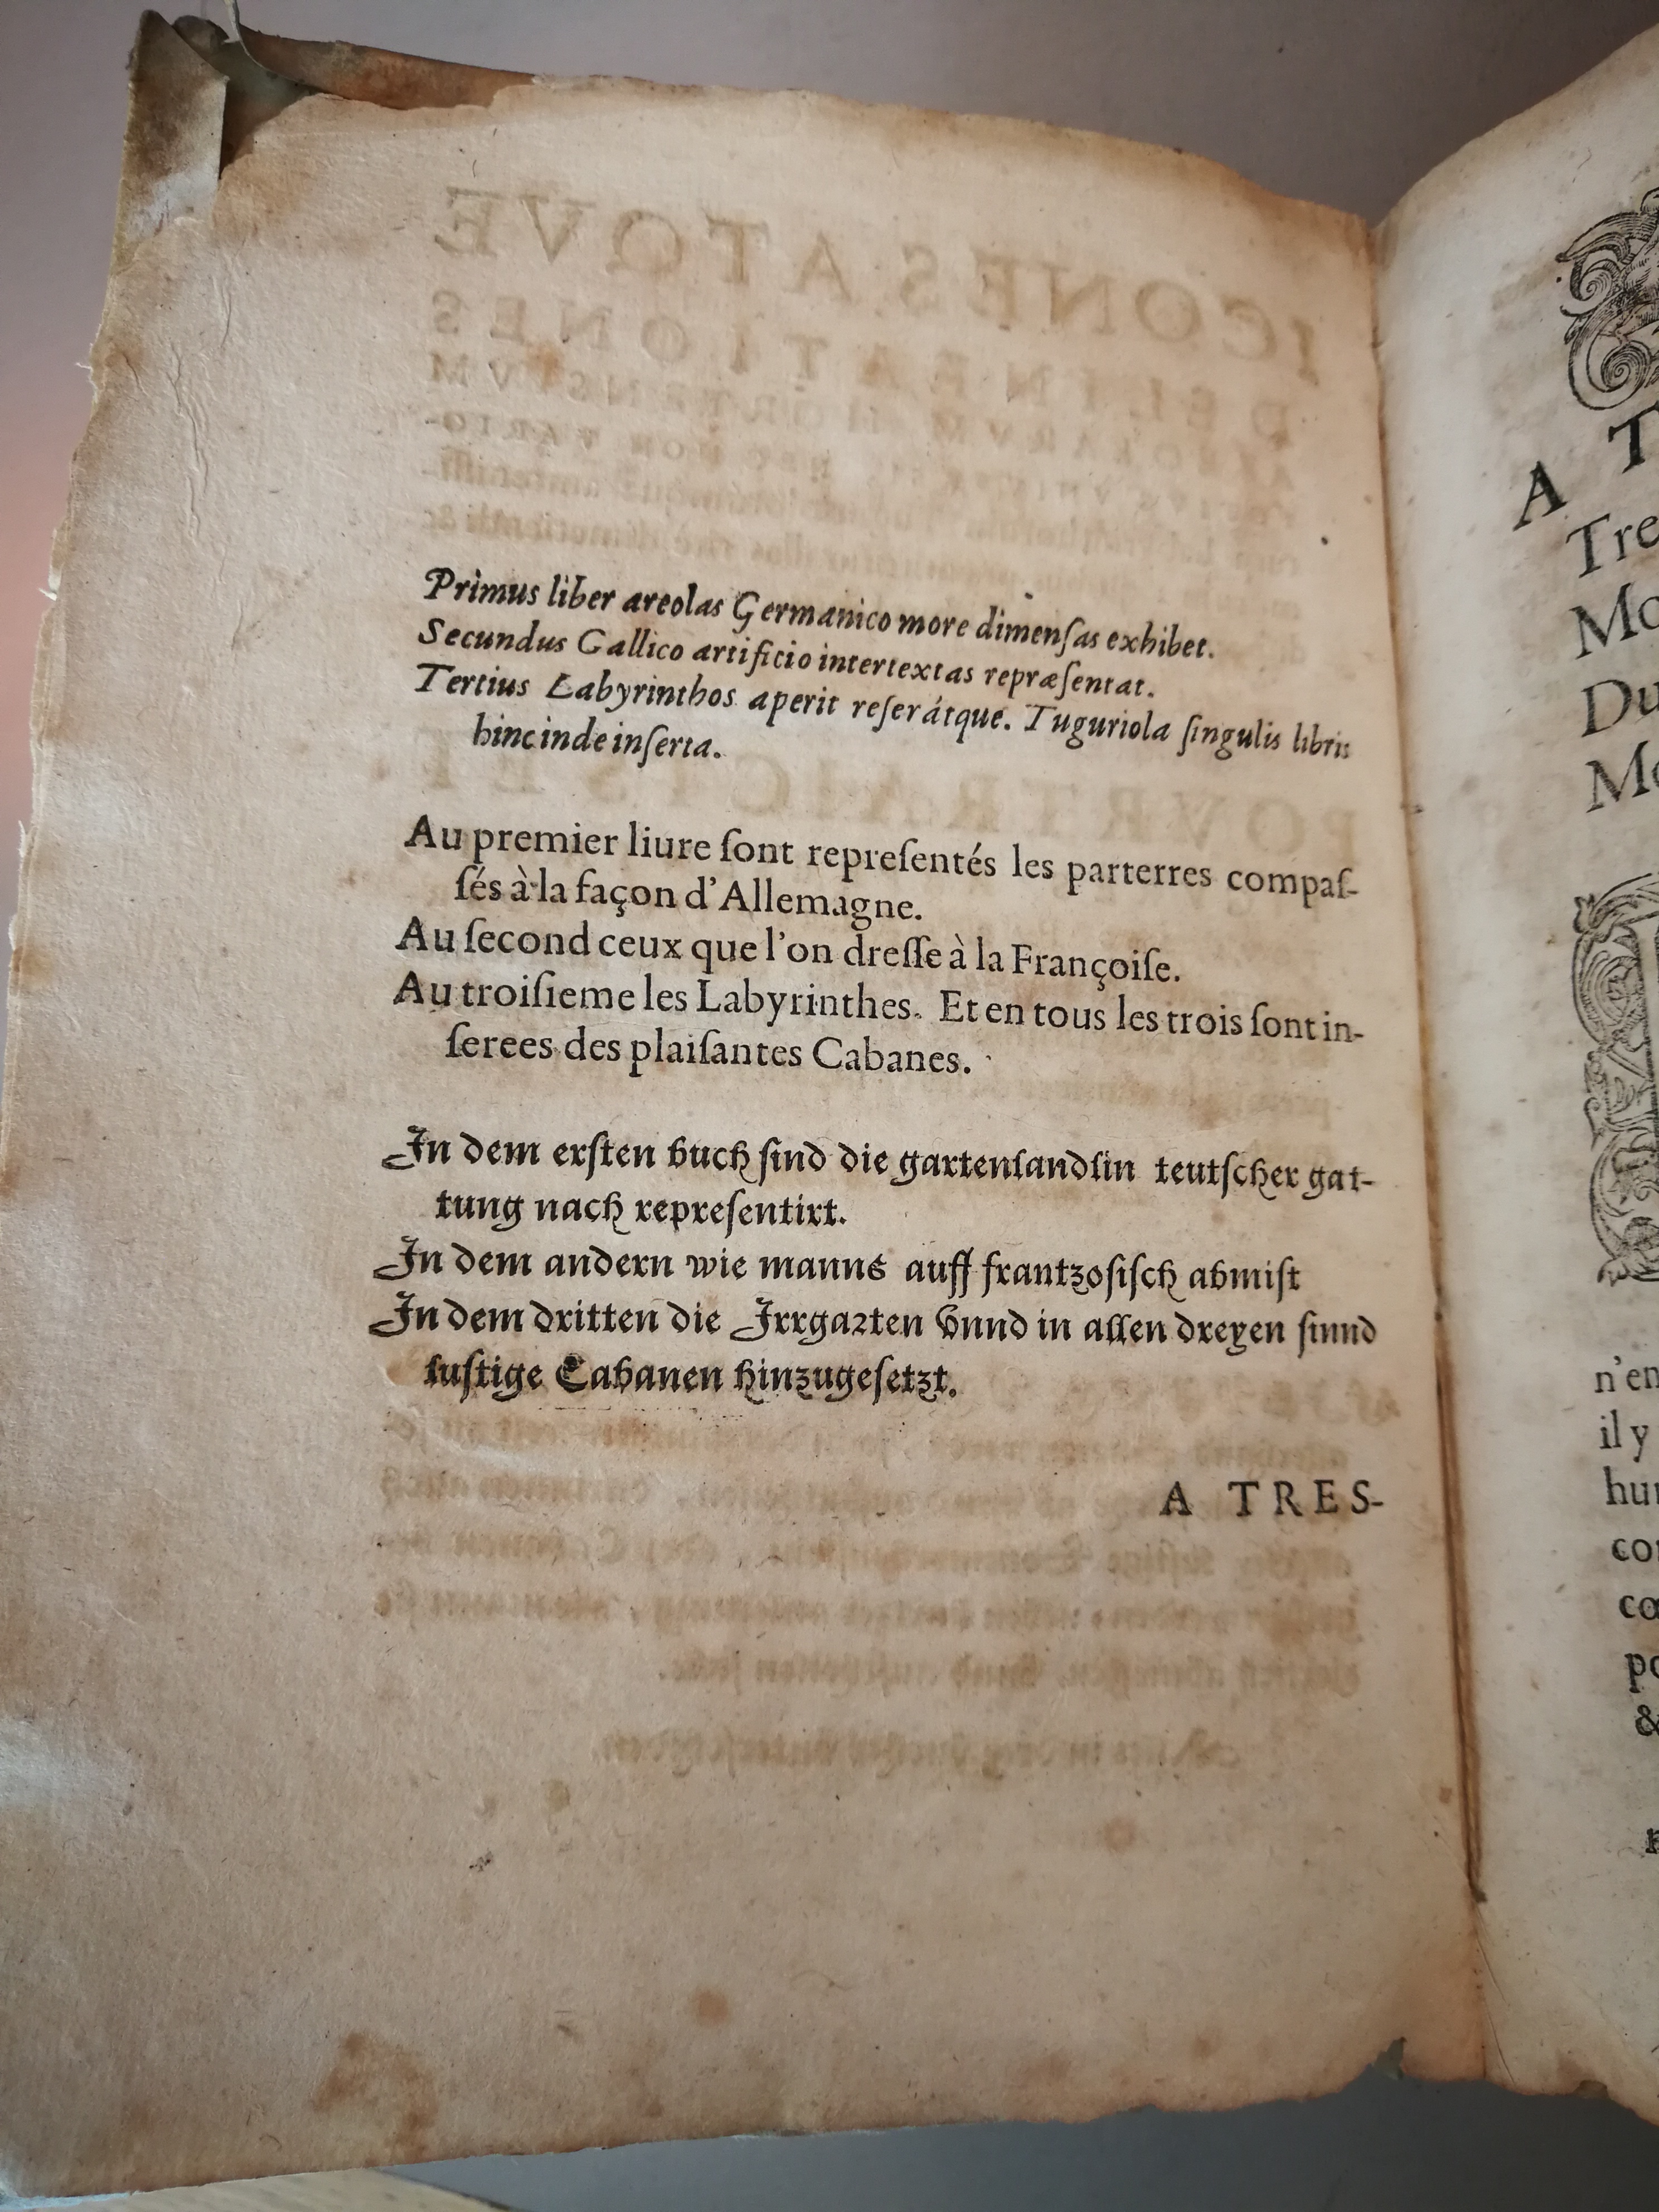 Primus liber areolas Germanico more dimenſas exhibet.
Secundus Gallico artificio intertextas repræſentat.
Tertius Labyrinthos aperit reſerátque. Tuguriola ſingulis libris
hinc inde inſerta.
Au premier liure ſont repreſentés les parterres compaſ-
ſés à la façon d'Allemagne.
Au ſecond ceux que l'on dreſſe à la Françoiſe.
Au troiſieme les Labyrinthes. Et en tous les trois ſont in-
ſerees des plaiſantes Cabanes.
In dem erſten buch ſind die gartenlandlin teutſcher gat-
tung nach repreſentirt.
In dem andern wie manns auff frantzoſiſch abmiſt
In dem dritten die Irrgaꝛten vnnd in allen dreyen ſinnd
luſtige Cabanen hinzugeſetzt.
A TRES-
A T
Tre
Mo
Du
Mo
n'en
il y
hu
co
cœ
po
&